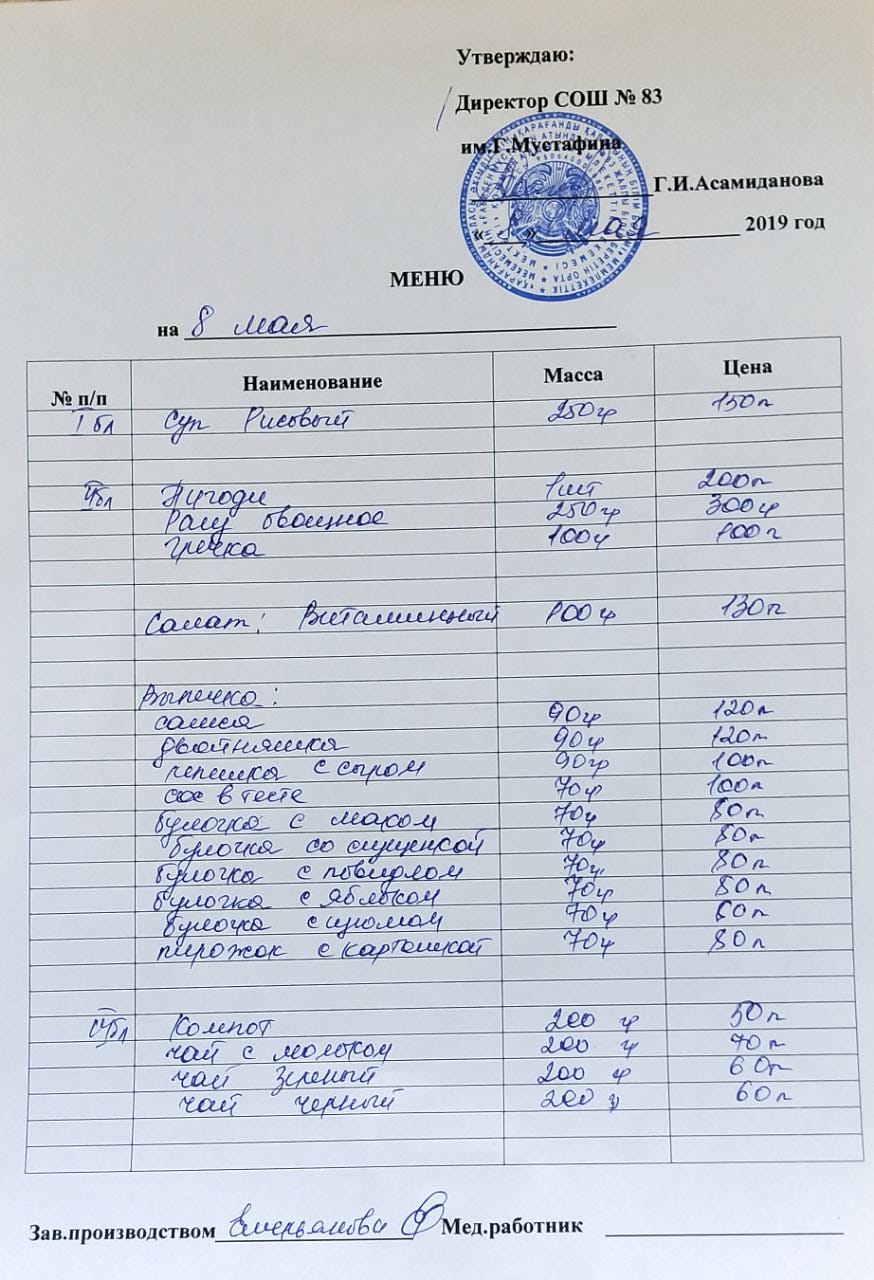 Утверждаю:
Директор СОШ № 83
им.Г.Мустафина
Г.И.Асамиданова
« » мая 2019 год
МЕНЮ
на 8 мая
№ п/п Наименование Масса Цена
I бл Суп Рисовый 250гр 150т
II бл Пигоди 1шт 200т
Рагу овощное 250гр 300гр
Гречка 100гр 100т
Салат: Витаминный 100гр 130т
Выпечка:
самса 90гр 120т
двойняшка 90гр 120т
лепешка с сыром 90гр 100т
сос в тесте 70гр 100т
булочка с маком 70гр 80т
булочка со сгущенкой 70гр 80т
булочка с повидлом 70гр 80т
булочка с яблоком 70гр 80т
булочка с изюмом 70гр 80т
пирожок с картошкой 70гр 80т
бл Компот 200 гр 50т
чай с молоком 200 гр 70т
чай зеленый 200 гр 60т
чай черный 200 гр 60т
Зав.производством Емельянова Мед.работник